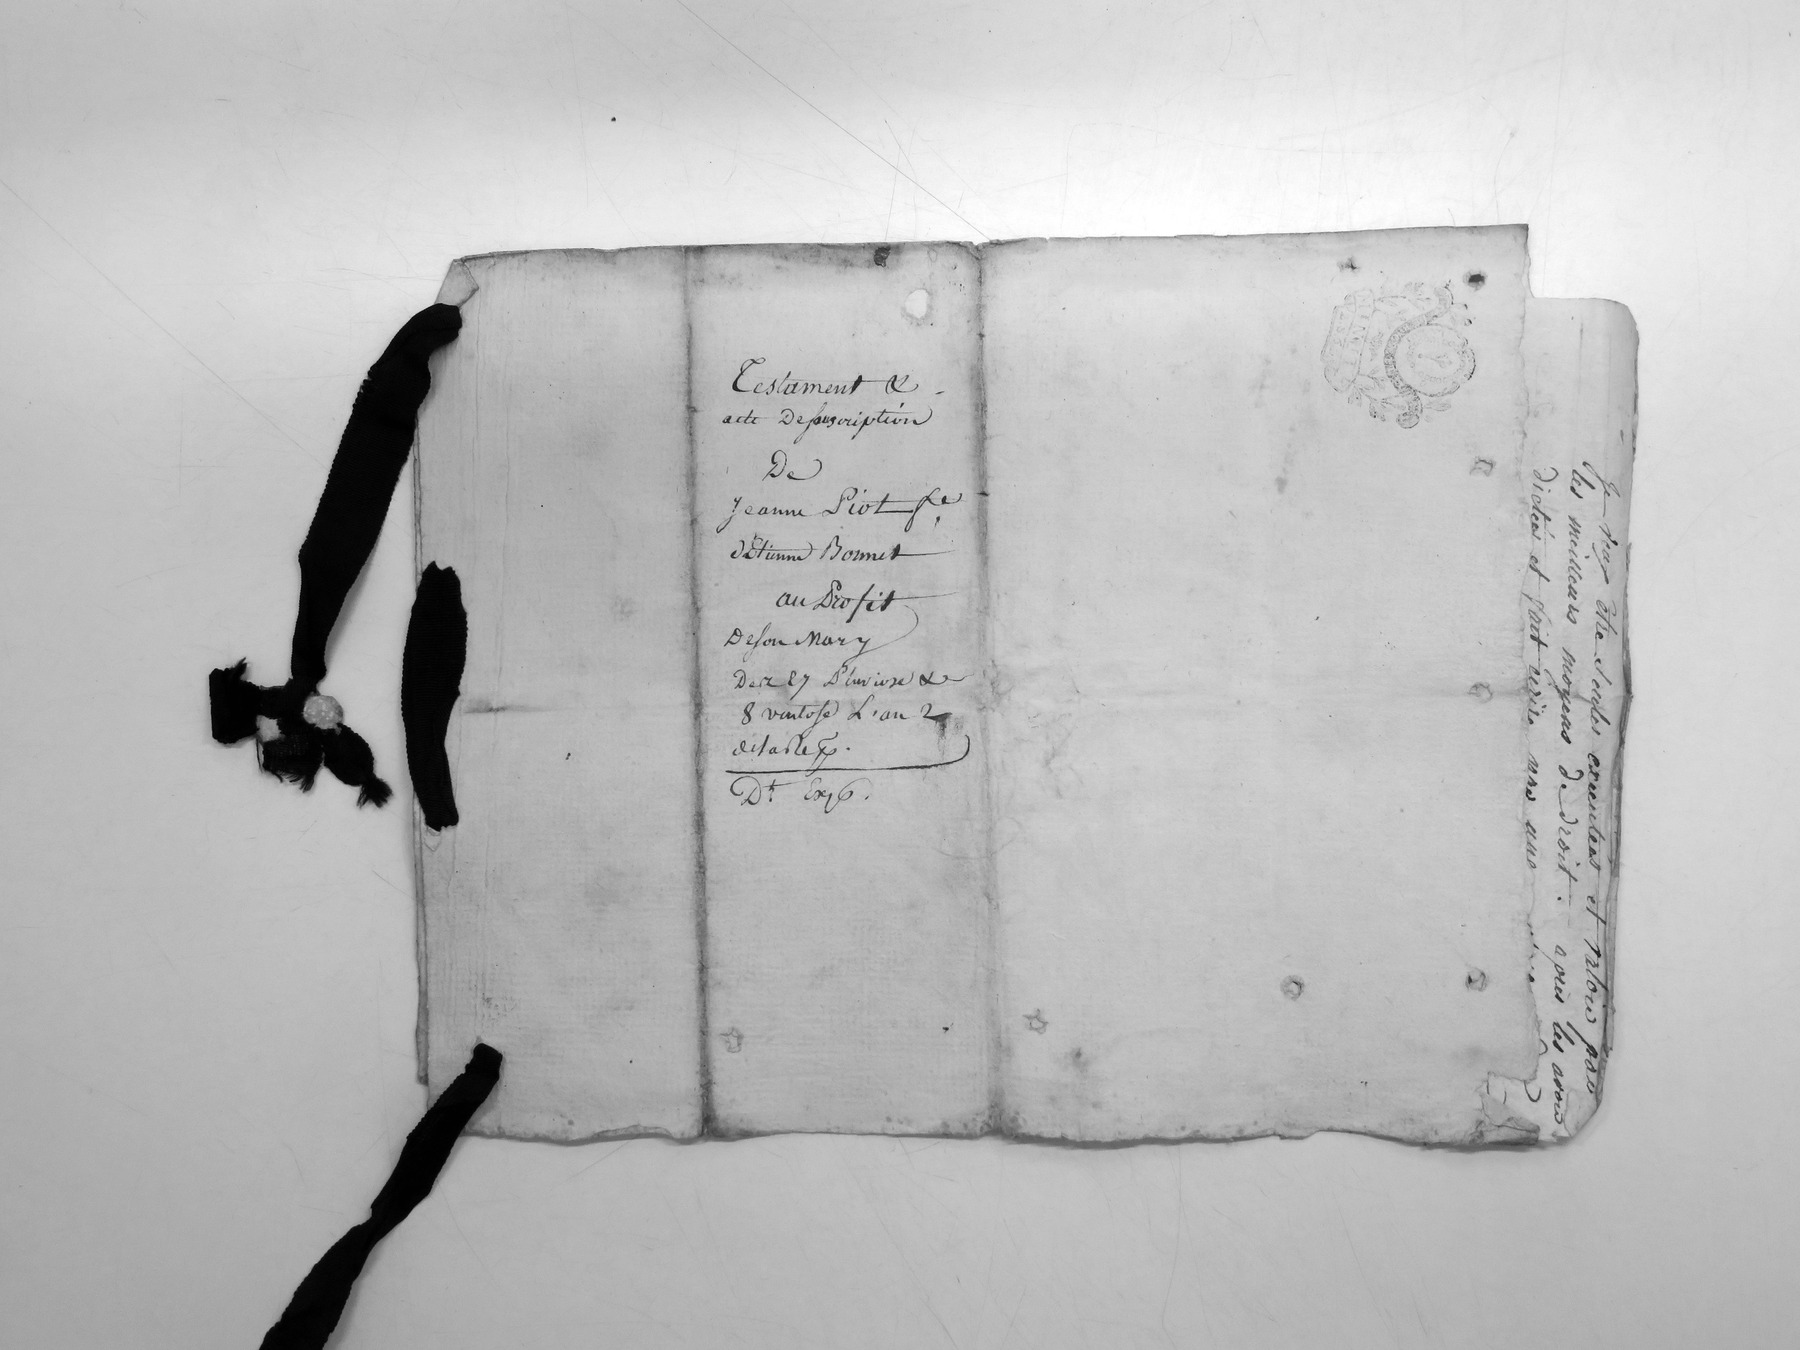 Testament &
acte Desouscription
De
Jeanne Piot fe
d'Etienne Bonnet
au Profit
Deson Mary
Des 27 Pluviose &
8 ventose L'an 2
Dt Exp.
Je veux être seules executées et valoir par
les meilleurs moyens de droit. après les avoir
dictées et fait ecrire